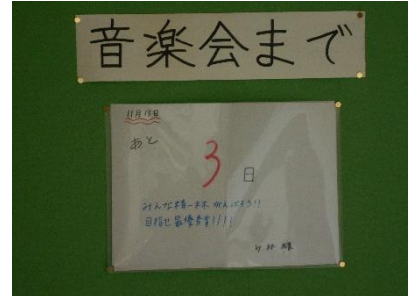 音楽会まで
あと
3
日
みんな精一杯がんばろう!!
目指せ最優秀賞!!!!